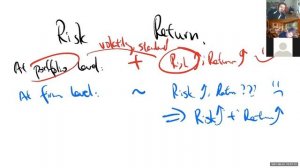 Risk Return
volatility, standard
At portfolio level: + Risk↑, Return↑
At firm level: ~ Risk↑, Return ???
⇒ Risk↑ + Return↑